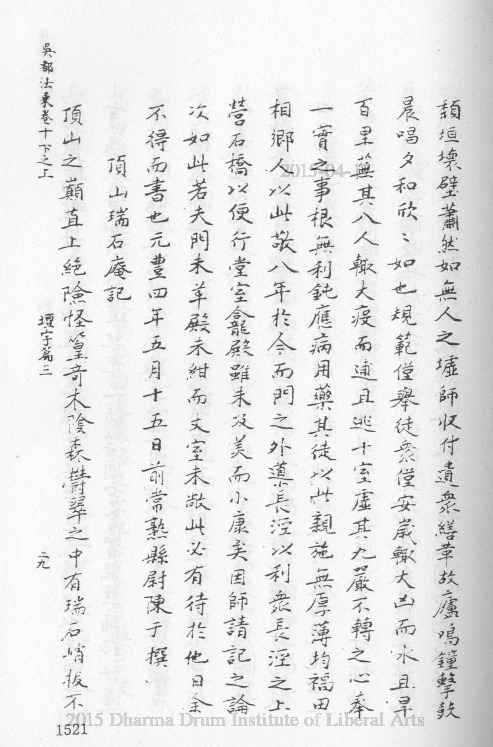 頹垣壞壁蕭然如無人之墟師收付遺衆繕葺故廬鳴鐘擊鼓
晨唱夕和欣〻如也規範僅舉徒衆僅安歲輒大凶而水且旱
百里蕪其八人輒大疫而逋且逃十室虛其九嚴不轉之心奉
一實之事根無利鈍應病用藥其徒以此親施無厚薄均福田
相鄉人以此敬八年於今而門之外導長涇以利衆長涇之上
營石橋以便行堂室龕殿雖未及美而小康矣因師請記之論
次如此若夫門未革殿未紺而丈室未敞此必有待於他日余
不得而書也元豊四年五月十五日前常熟縣尉陳于撰
頂山瑞石庵記
頂山之巔直上絕險怪篁奇木陰森欝翠之中有瑞石峭拔不
吳都法乘卷十下之上
壇宇篇三
二九
1521
2015-04-
2015 Dharma Drum Institute of Liberal Arts